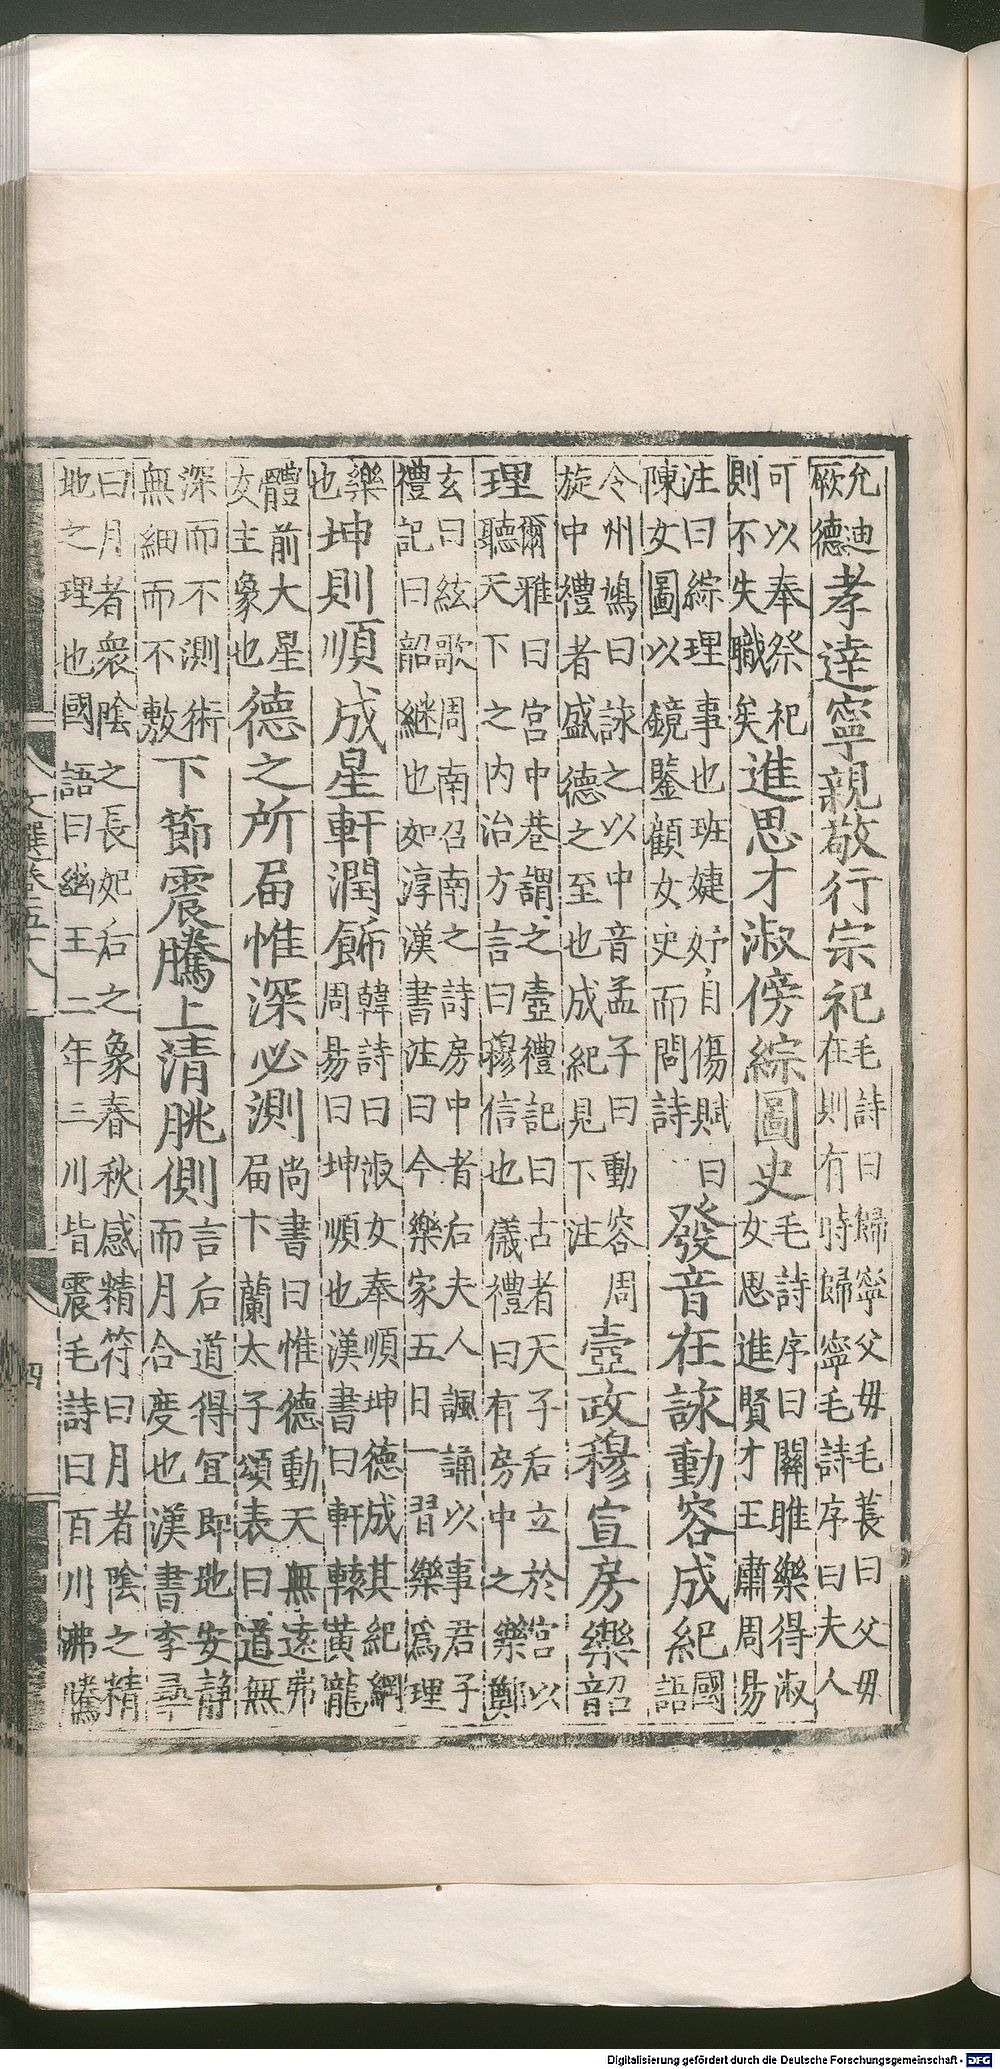 允迪
厥德孝達寧親敬行宗祀毛詩曰歸寧父毋毛萇曰父毋
在則有時歸寧毛詩序曰夫人
可以奉祭祀
則不失職矣進思才淑傍綜圖史毛詩序曰關雎樂得淑
女思進賢才王肅周易
注曰綜理事也班婕妤自傷賦曰
陳女圖以鏡鑒顧女史而問詩發音在詠動容成紀國
語
令州鳩曰詠之以中音孟子曰動容周
旋中禮者盛德之至也成紀見下注壼政穆宣房樂韶
理爾雅曰宮中巷謂之壼禮記曰古者天子后立於宮以
聽天下之内治方言曰穆信也儀禮曰有房中之樂鄭
玄曰絃歌周南召南之詩房中者后夫人諷誦以事君子
禮記曰韶継也如淳漢書注曰今樂家五日一習樂爲理
樂
也坤則順成星軒潤飾韓詩曰淑女奉順坤德成其紀綱
周易曰坤順也漢書曰軒轅黃龍
體前大星
女主象也德之所屆惟深必測尚書曰惟德動天無遠弗
屆卞蘭太子頌表曰道無
深而不測術
無細而不敷下節震騰上清朓側言后道得宜即地安靜
而月合度也漢書李尋
曰月者衆陰之長妃后之象春秋感精符曰月者陰之精
地之理也國語曰幽王二年三川皆震毛詩曰百川沸騰
文選卷五十八
四
Digitalisierung gefördert durch die Deutsche Forschungsgemeinschaft - DFG